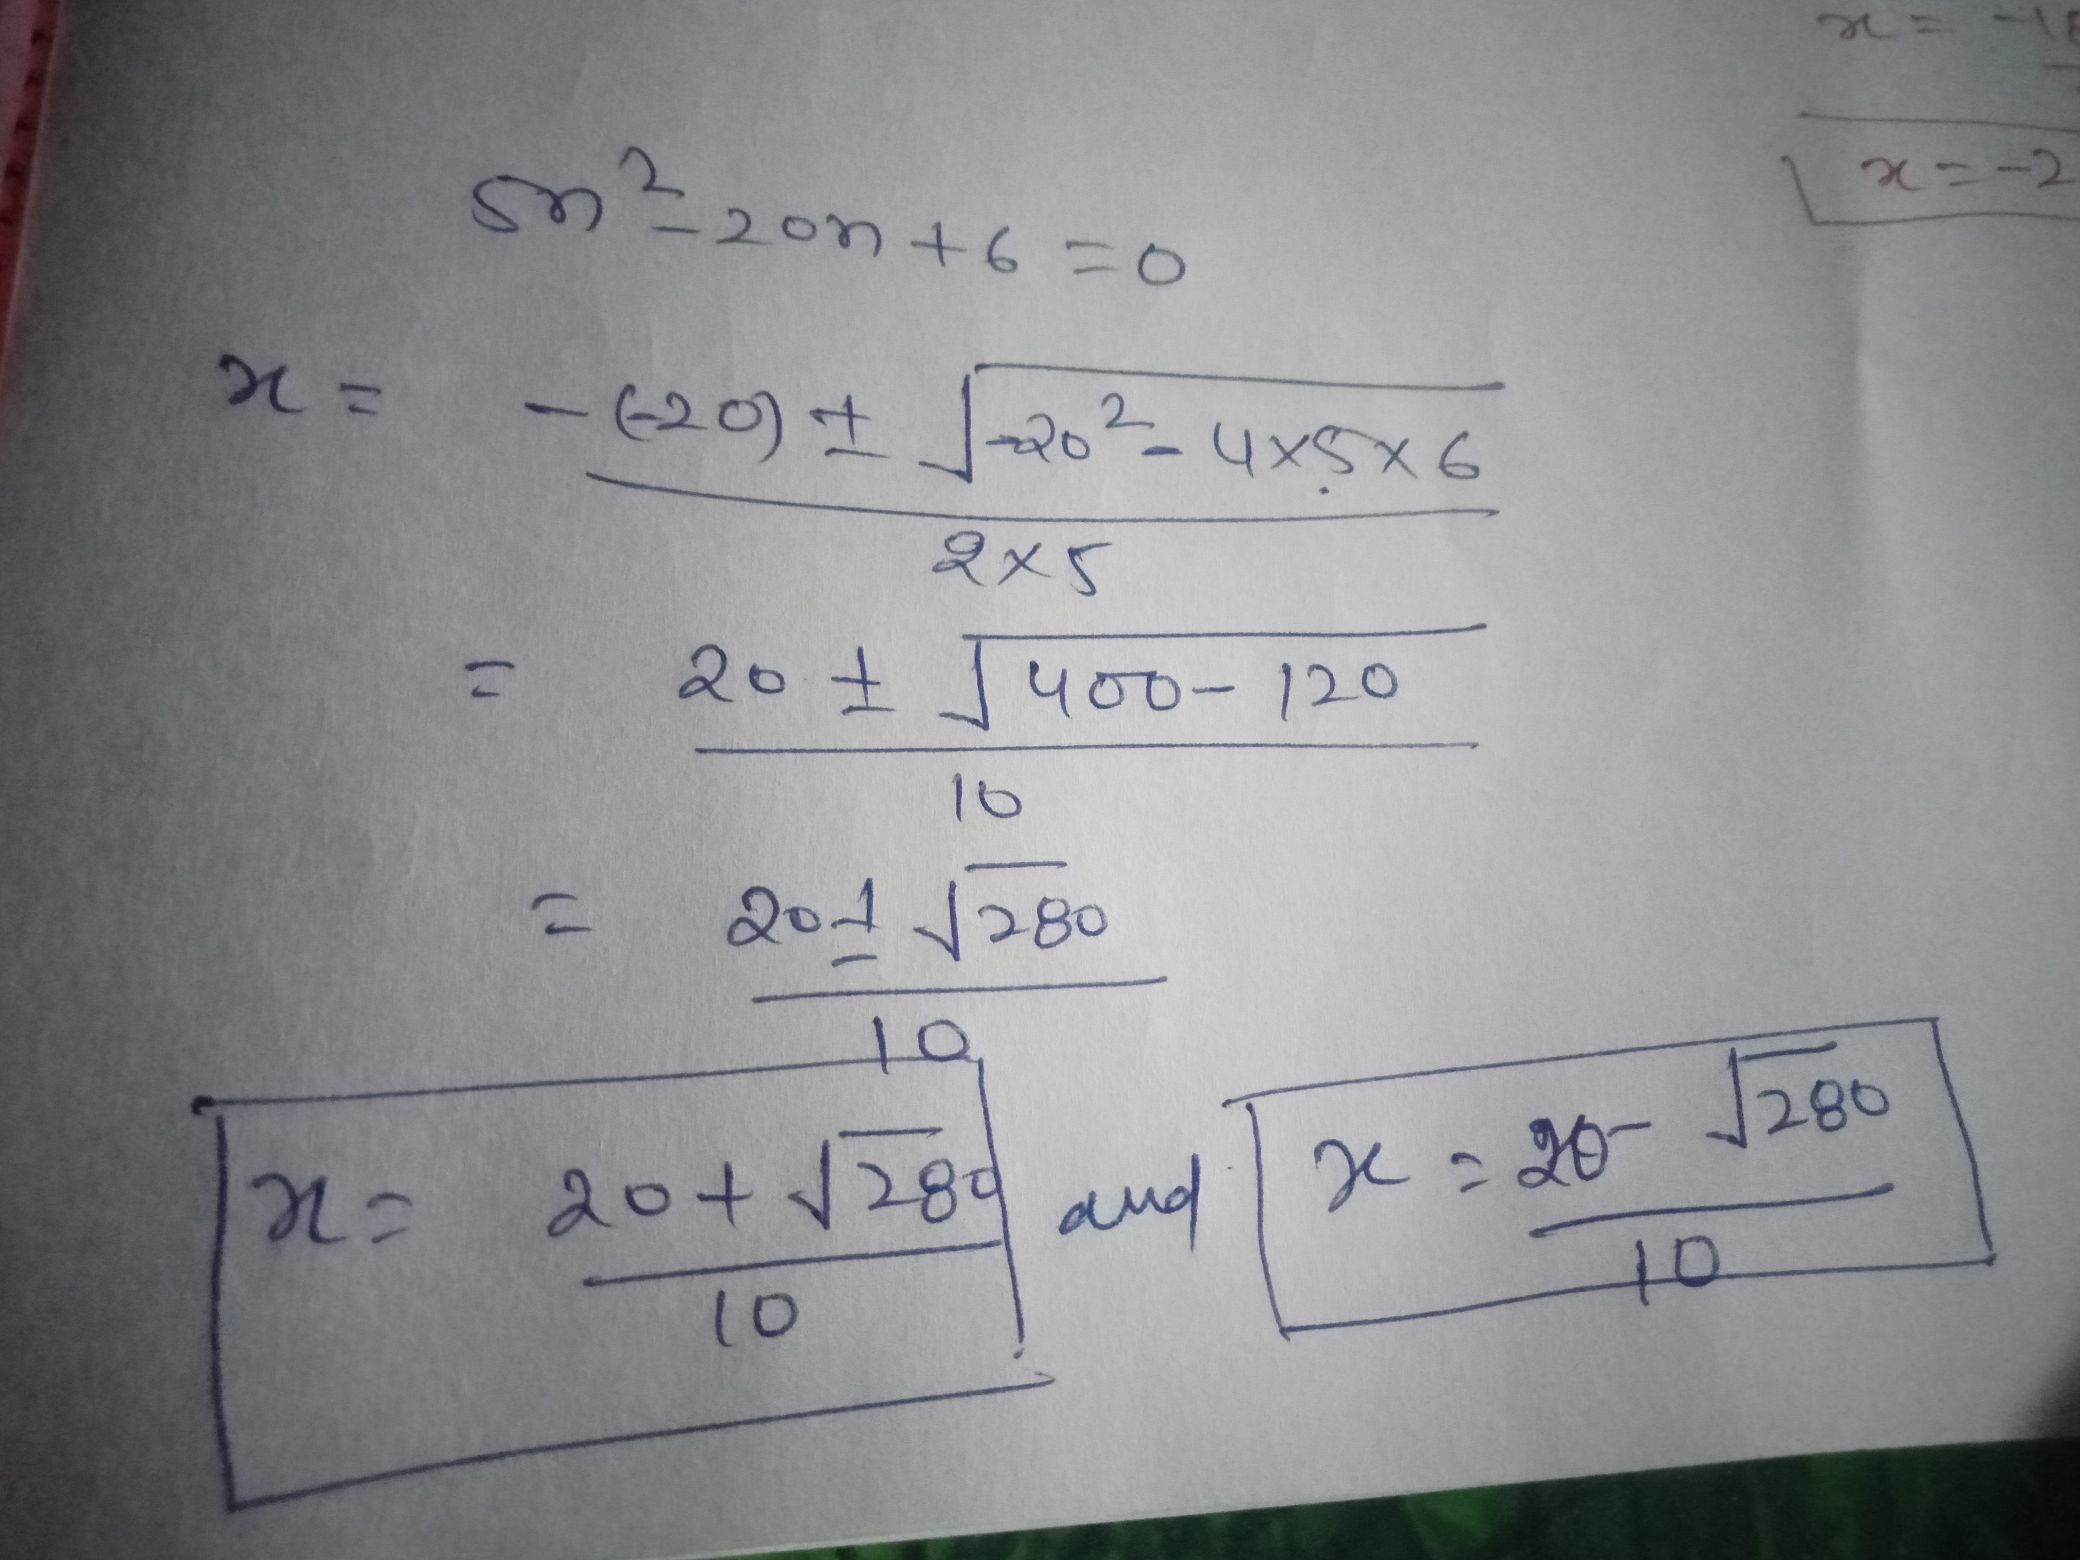 x = -18
x = -2
5x² - 20x + 6 = 0
x = -(-20) ± √-20² - 4×5×6
2×5
= 20 ± √400 - 120
10
= 20 ± √280
10
x = 20 + √280 and x = 20 - √280
10 10